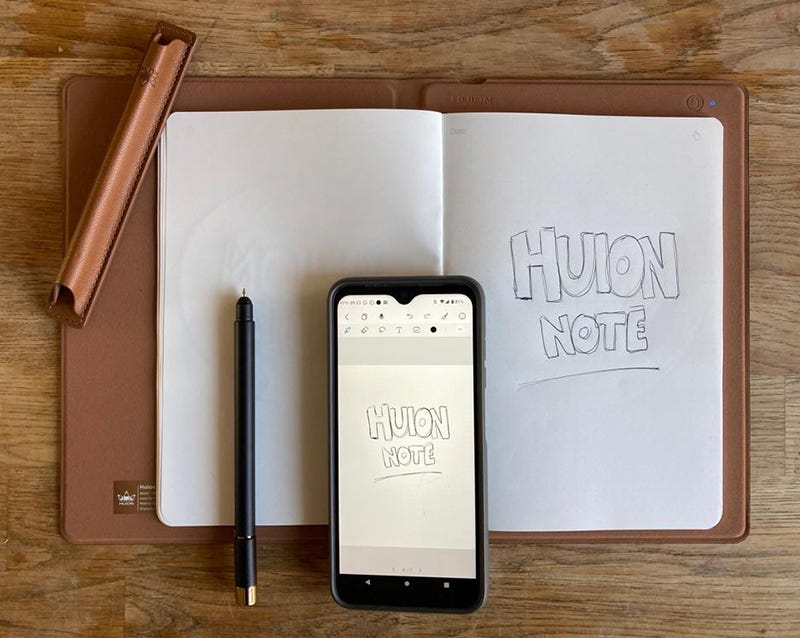 HUION
Date:
HUION
NOTE
HUION
NOTE
HUION